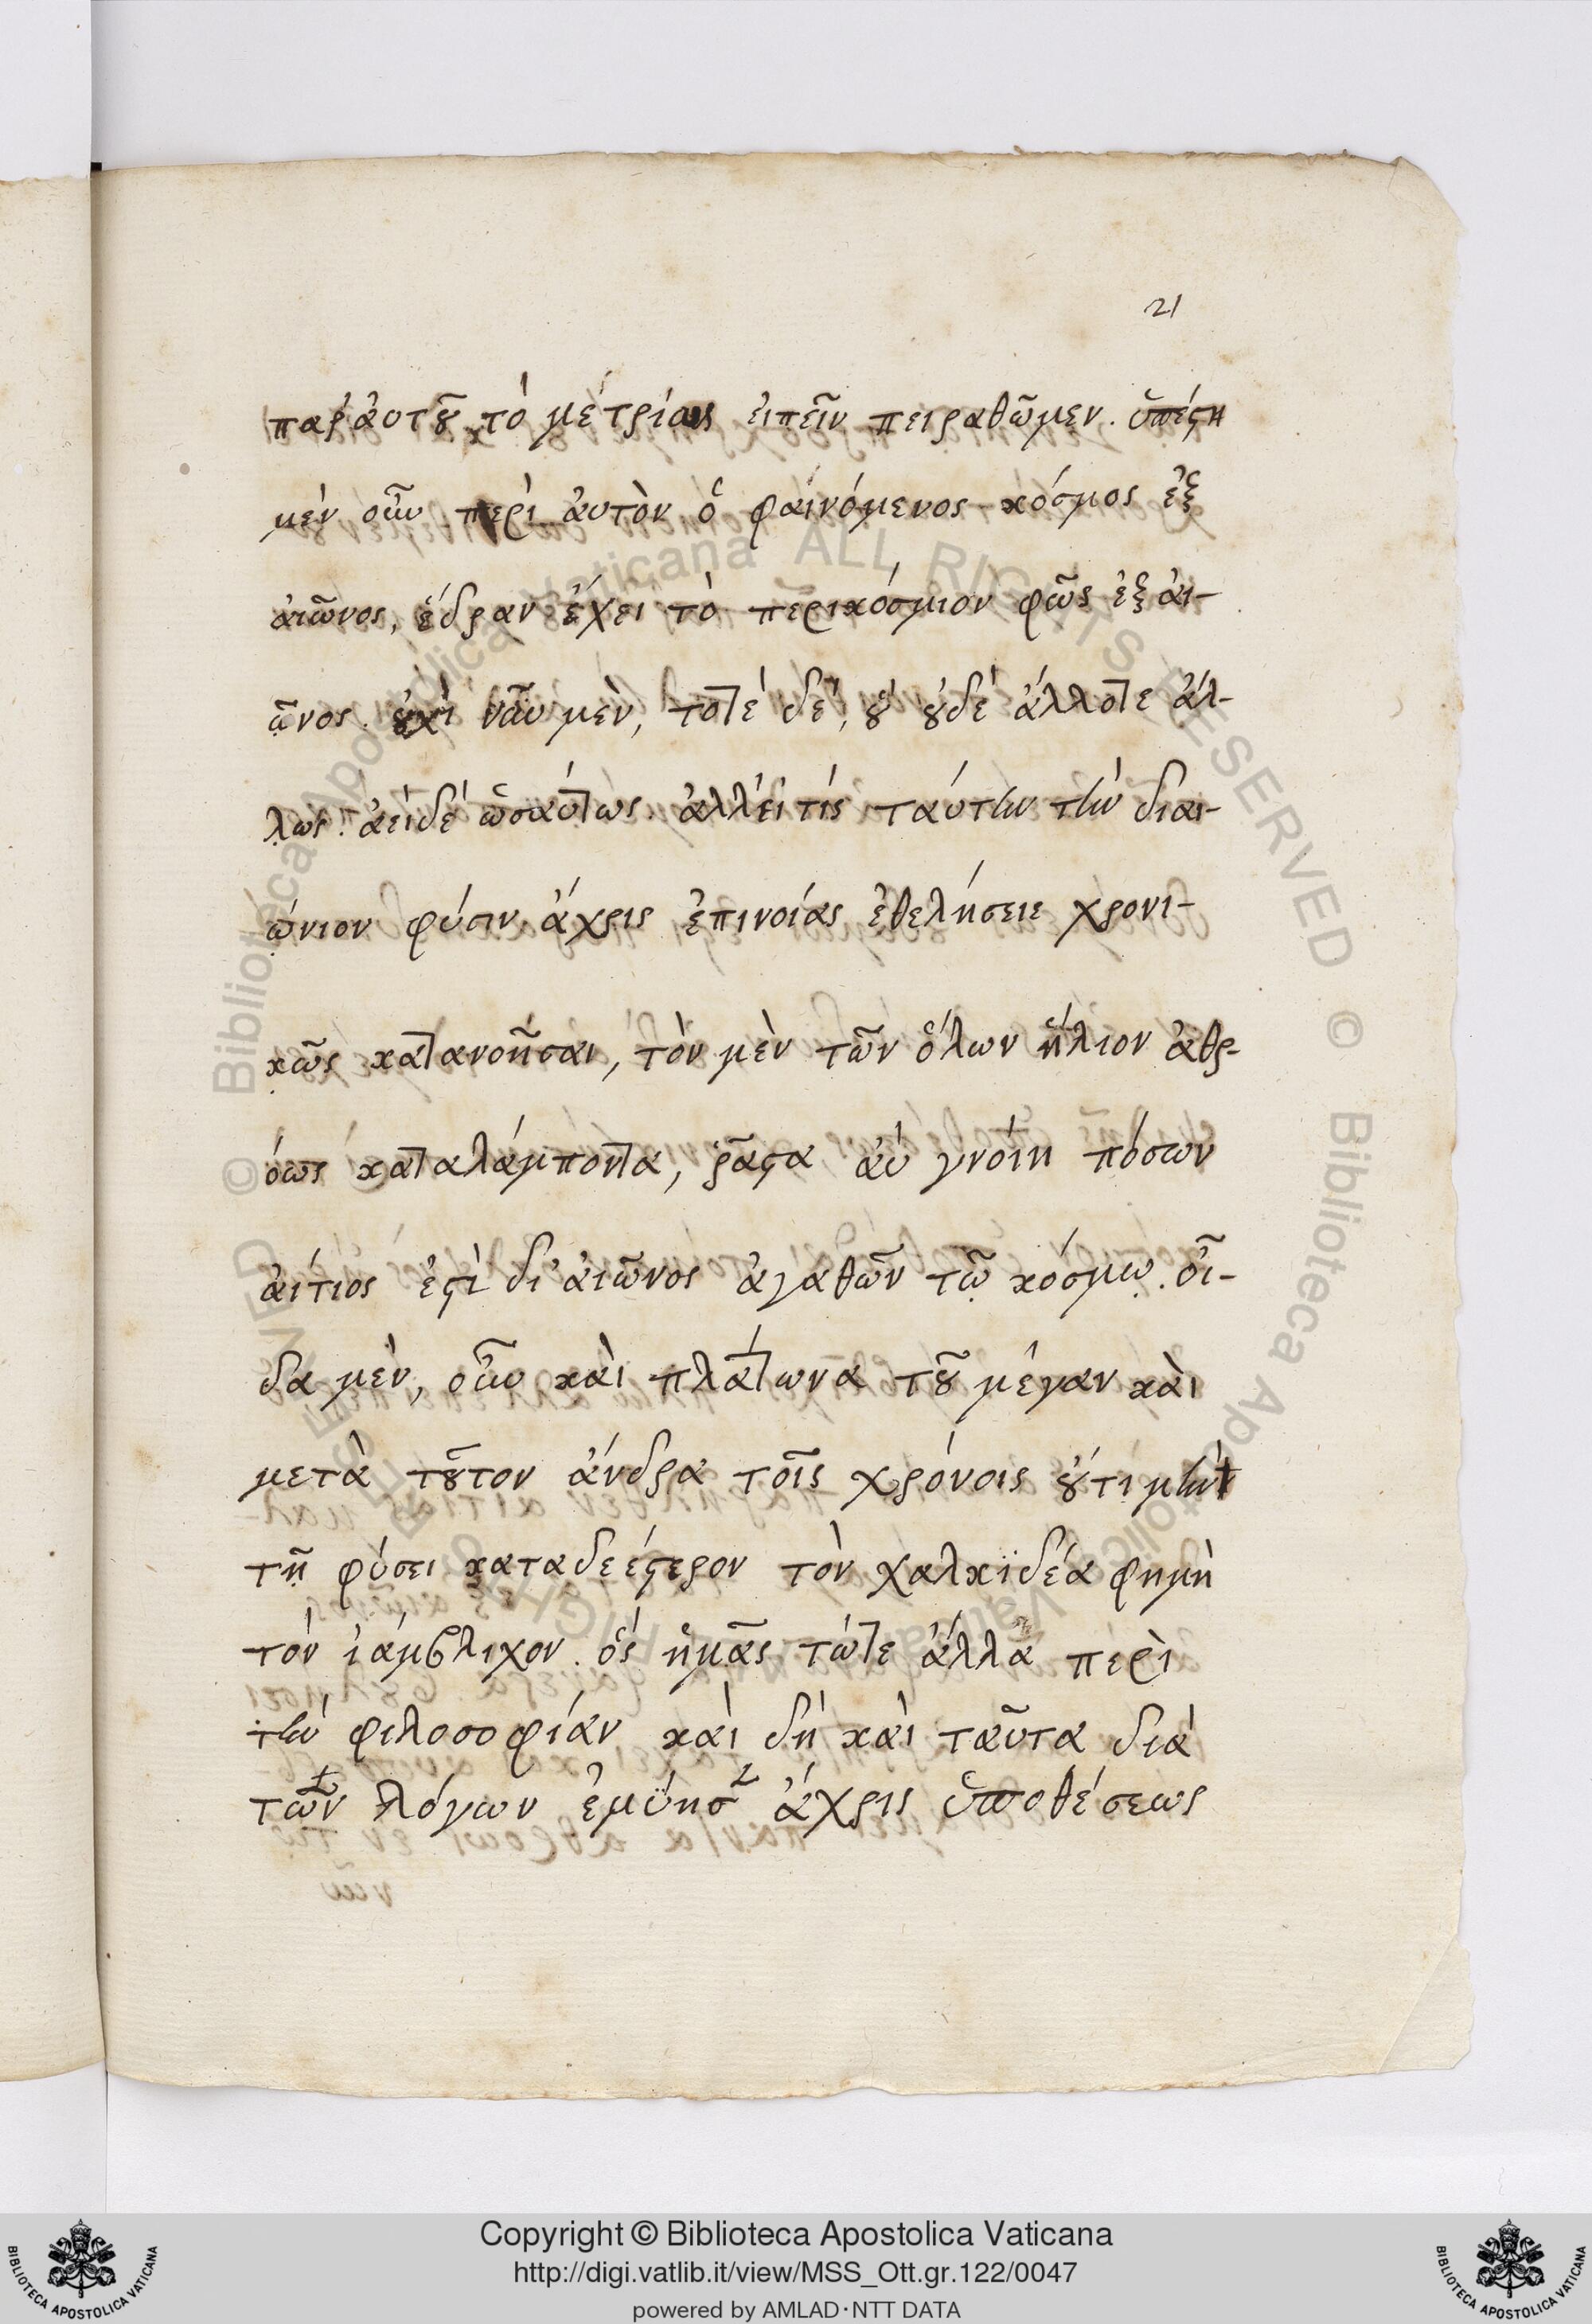 21
παρ' ἀυτοῦ τὸ μέτριον ἐιπεῖν πειραθῶμεν. ὑπέστη
μὲν οὖν περὶ ἀυτὸν ὁ φαινόμενος κόσμος ἐξ
ἀιῶνος, ἕδραν ἔχει τὸ περικόσμιον φῶς ἐξ ἀι-
ῶνος. οὐχὶ νῦν μὲν, τοτὲ δὲ, οὔ οὐδὲ ἄλλοτε ἄλ-
λως. ἀεὶ δὲ ὡσαύτως. ἀλλ' ἔι τίς ταύτην τὴν διαι-
ώνιον φύσιν ἄχρις ἐπινοίας ἐθελήσειε χρονι-
κῶς κατανοῆσαι, τὸν μὲν τῶν ὅλων ἥλιον ἀθρ-
όως καταλάμποντα, ῥᾷστα ἀν γνοίη πόσων
ἀίτιος ἐστὶ δι' ἀιῶνος ἀγαθῶν τῷ κόσμῳ. οἶ-
δα μὲν, οὖν καὶ πλάτωνα τοῦ μέγαν καὶ
μετὰ τοῦτον ἄνδρα τοῖς χρόνοις οὔτι μὴν
τῇ φύσει καταδεέστερον τὸν χαλκϊδέα φημὶ
τὸν ἰάμβλιχον. ὅς ἡμᾶς τώτε ἄλλα περὶ
τὴν φιλοσοφίαν καὶ δὴ καὶ ταῦτα διὰ
τῶν λόγων ἐμύησ ἄχρις ὑποθέσεως
Copyright © Biblioteca Apostolica Vaticana
http://digi.vatlib.it/view/MSS_Ott.gr.122/0047
powered by AMLAD·NTT DATA